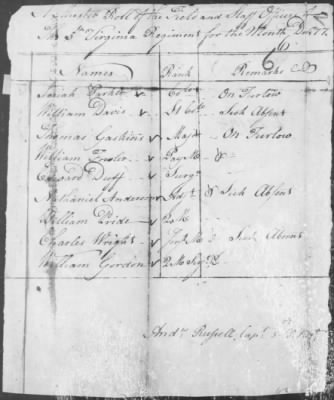 Muster Roll of the Field and Staff Officers
5th Virginia Regiment for the Month Decr 77
Names Rank Remarks &c
Josiah Parker Colo On Furlow
William Davis Lt Colo Sick Absent
Thomas Gaskins Majr On Furlow
William Pay Mr
Edward Duff Surgn
Nathaniel Anderson Adjt Sick Absent
William Pride Q M
Charles Wright Serjt Mr Sick Absent
William Gordon Q M Serjt
Andw Russell, Capt 5th V. Regt